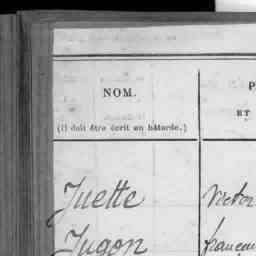 NOM. P
(Il doit être écrit en bâtarde.) ET
Juette Victor
Jugon